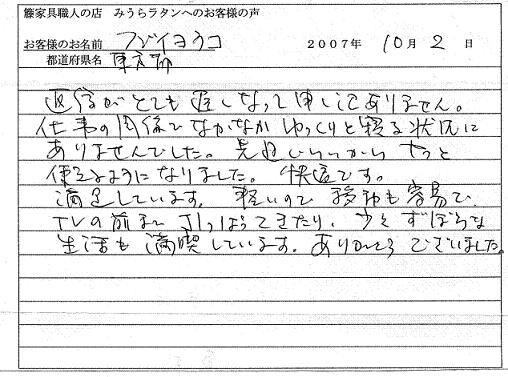 籐家具職人の店　みうらラタンへのお客様の声
お客様のお名前　フジイヨウコ　2007年 10月 2日
都道府県名　東京都
返信がとても遅くなって申し訳ありません。
仕事の関係でなかなかゆっくりと寝る状況に
ありませんでした。先週いらいからやっと
使えるようになりました。快適です。
満足しています。軽いので移動も容易で、
TVの前までひっぱってきたり、少々ずぼらな
生活も満喫しています。ありがとうございました。